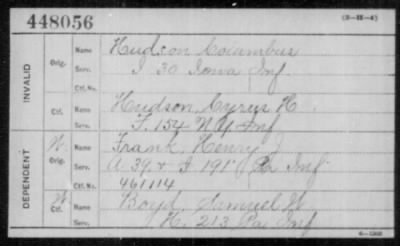 448056 (3-111-4)
INVALID
Orig. Name Hudson Columbus
Serv. I 30 Iowa Inf.
Ctf. Name Hudson, Cyrus H.
Serv. F. 154 N Y Inf
Ctf. No.
DEPENDENT
W. Orig. Name Frank, Henry J
Serv. A 39. & I 191" Pa Inf
Ctf. No. 461114
W Ctf. Name Boyd, Samuel W
Serv. K. 213 Pa. Inf